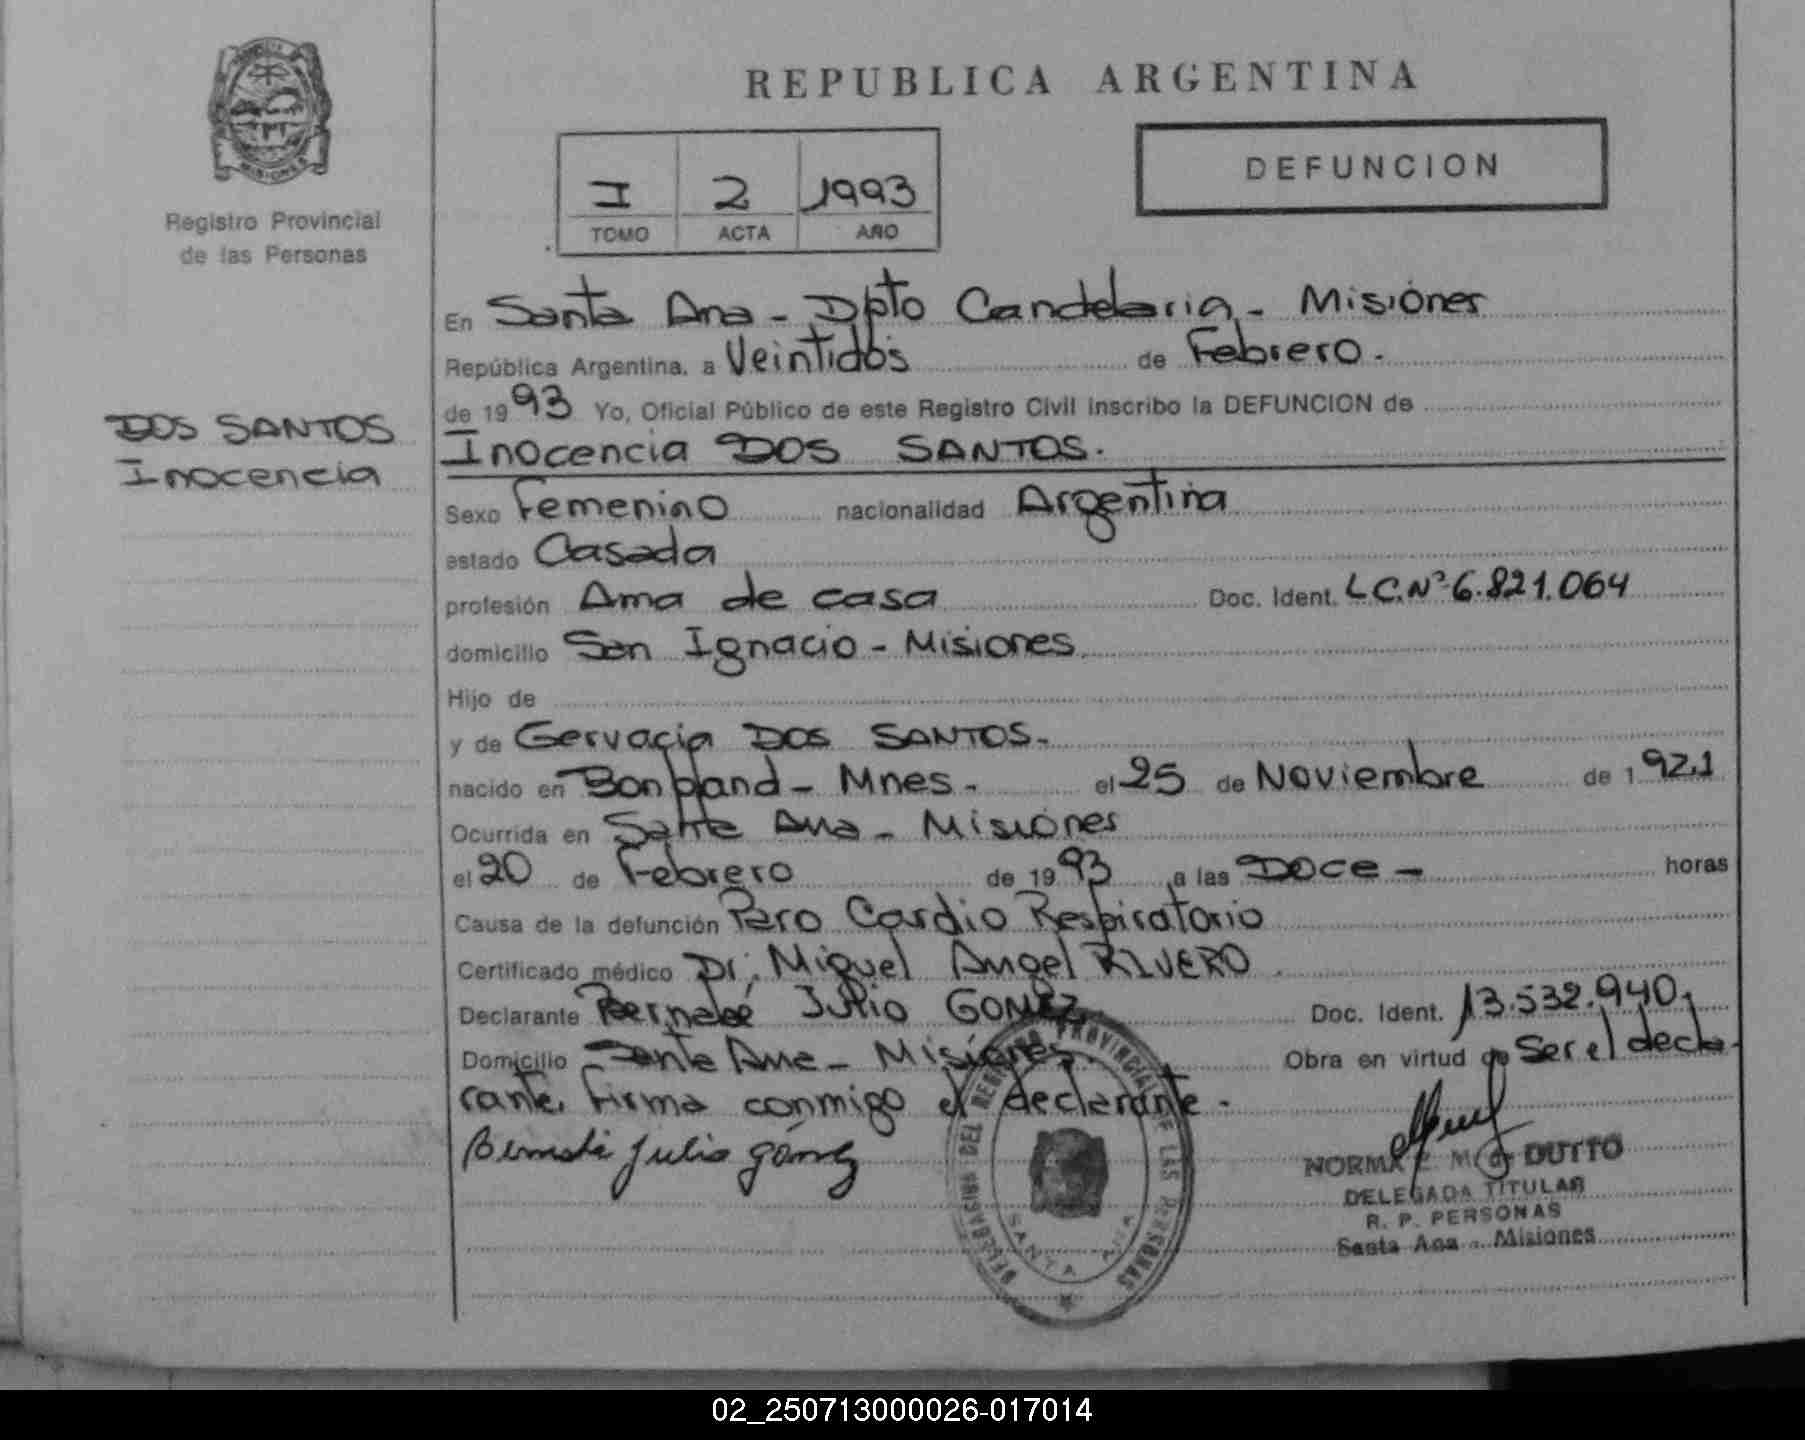 REPUBLICA ARGENTINA
PROVINCIA DE
MISIONES
Registro Provincial
de las Personas
I 2 1993
TOMO ACTA AÑO
DEFUNCION
DOS SANTOS
Inocencia
En Santa Ana - Dpto Candelaria - Misiones
República Argentina, a Veintidós de Febrero.
de 1993 Yo, Oficial Público de este Registro Civil inscribo la DEFUNCION de
Inocencia DOS SANTOS.
Sexo Femenino nacionalidad Argentina
estado Casada
profesión Ama de casa Doc. Ident. L.C.Nº 6.821.064
domicilio San Ignacio - Misiones
Hijo de
y de Gervacia DOS SANTOS.
nacido en Bonpland - Mnes. el 25 de Noviembre de 1921
Ocurrida en Santa Ana - Misiones
el 20 de Febrero de 1993 a las Doce - horas
Causa de la defunción Paro Cardio Respiratorio
Certificado médico Dr. Miguel Angel RIVERO
Declarante Bernabé Julio GOMEZ Doc. Ident. 13.532.940
Domicilio Santa Ana - Misiones. Obra en virtud de Ser el decla-
rante. Firma conmigo el declarante.
Bernabé Julio Gómez
DELEGACION DEL REGISTRO PROVINCIAL DE LAS PERSONAS
SANTA ANA
NORMA DUTTO
DELEGADA TITULAR
R. P. PERSONAS
Santa Ana - Misiones
02_250713000026-017014